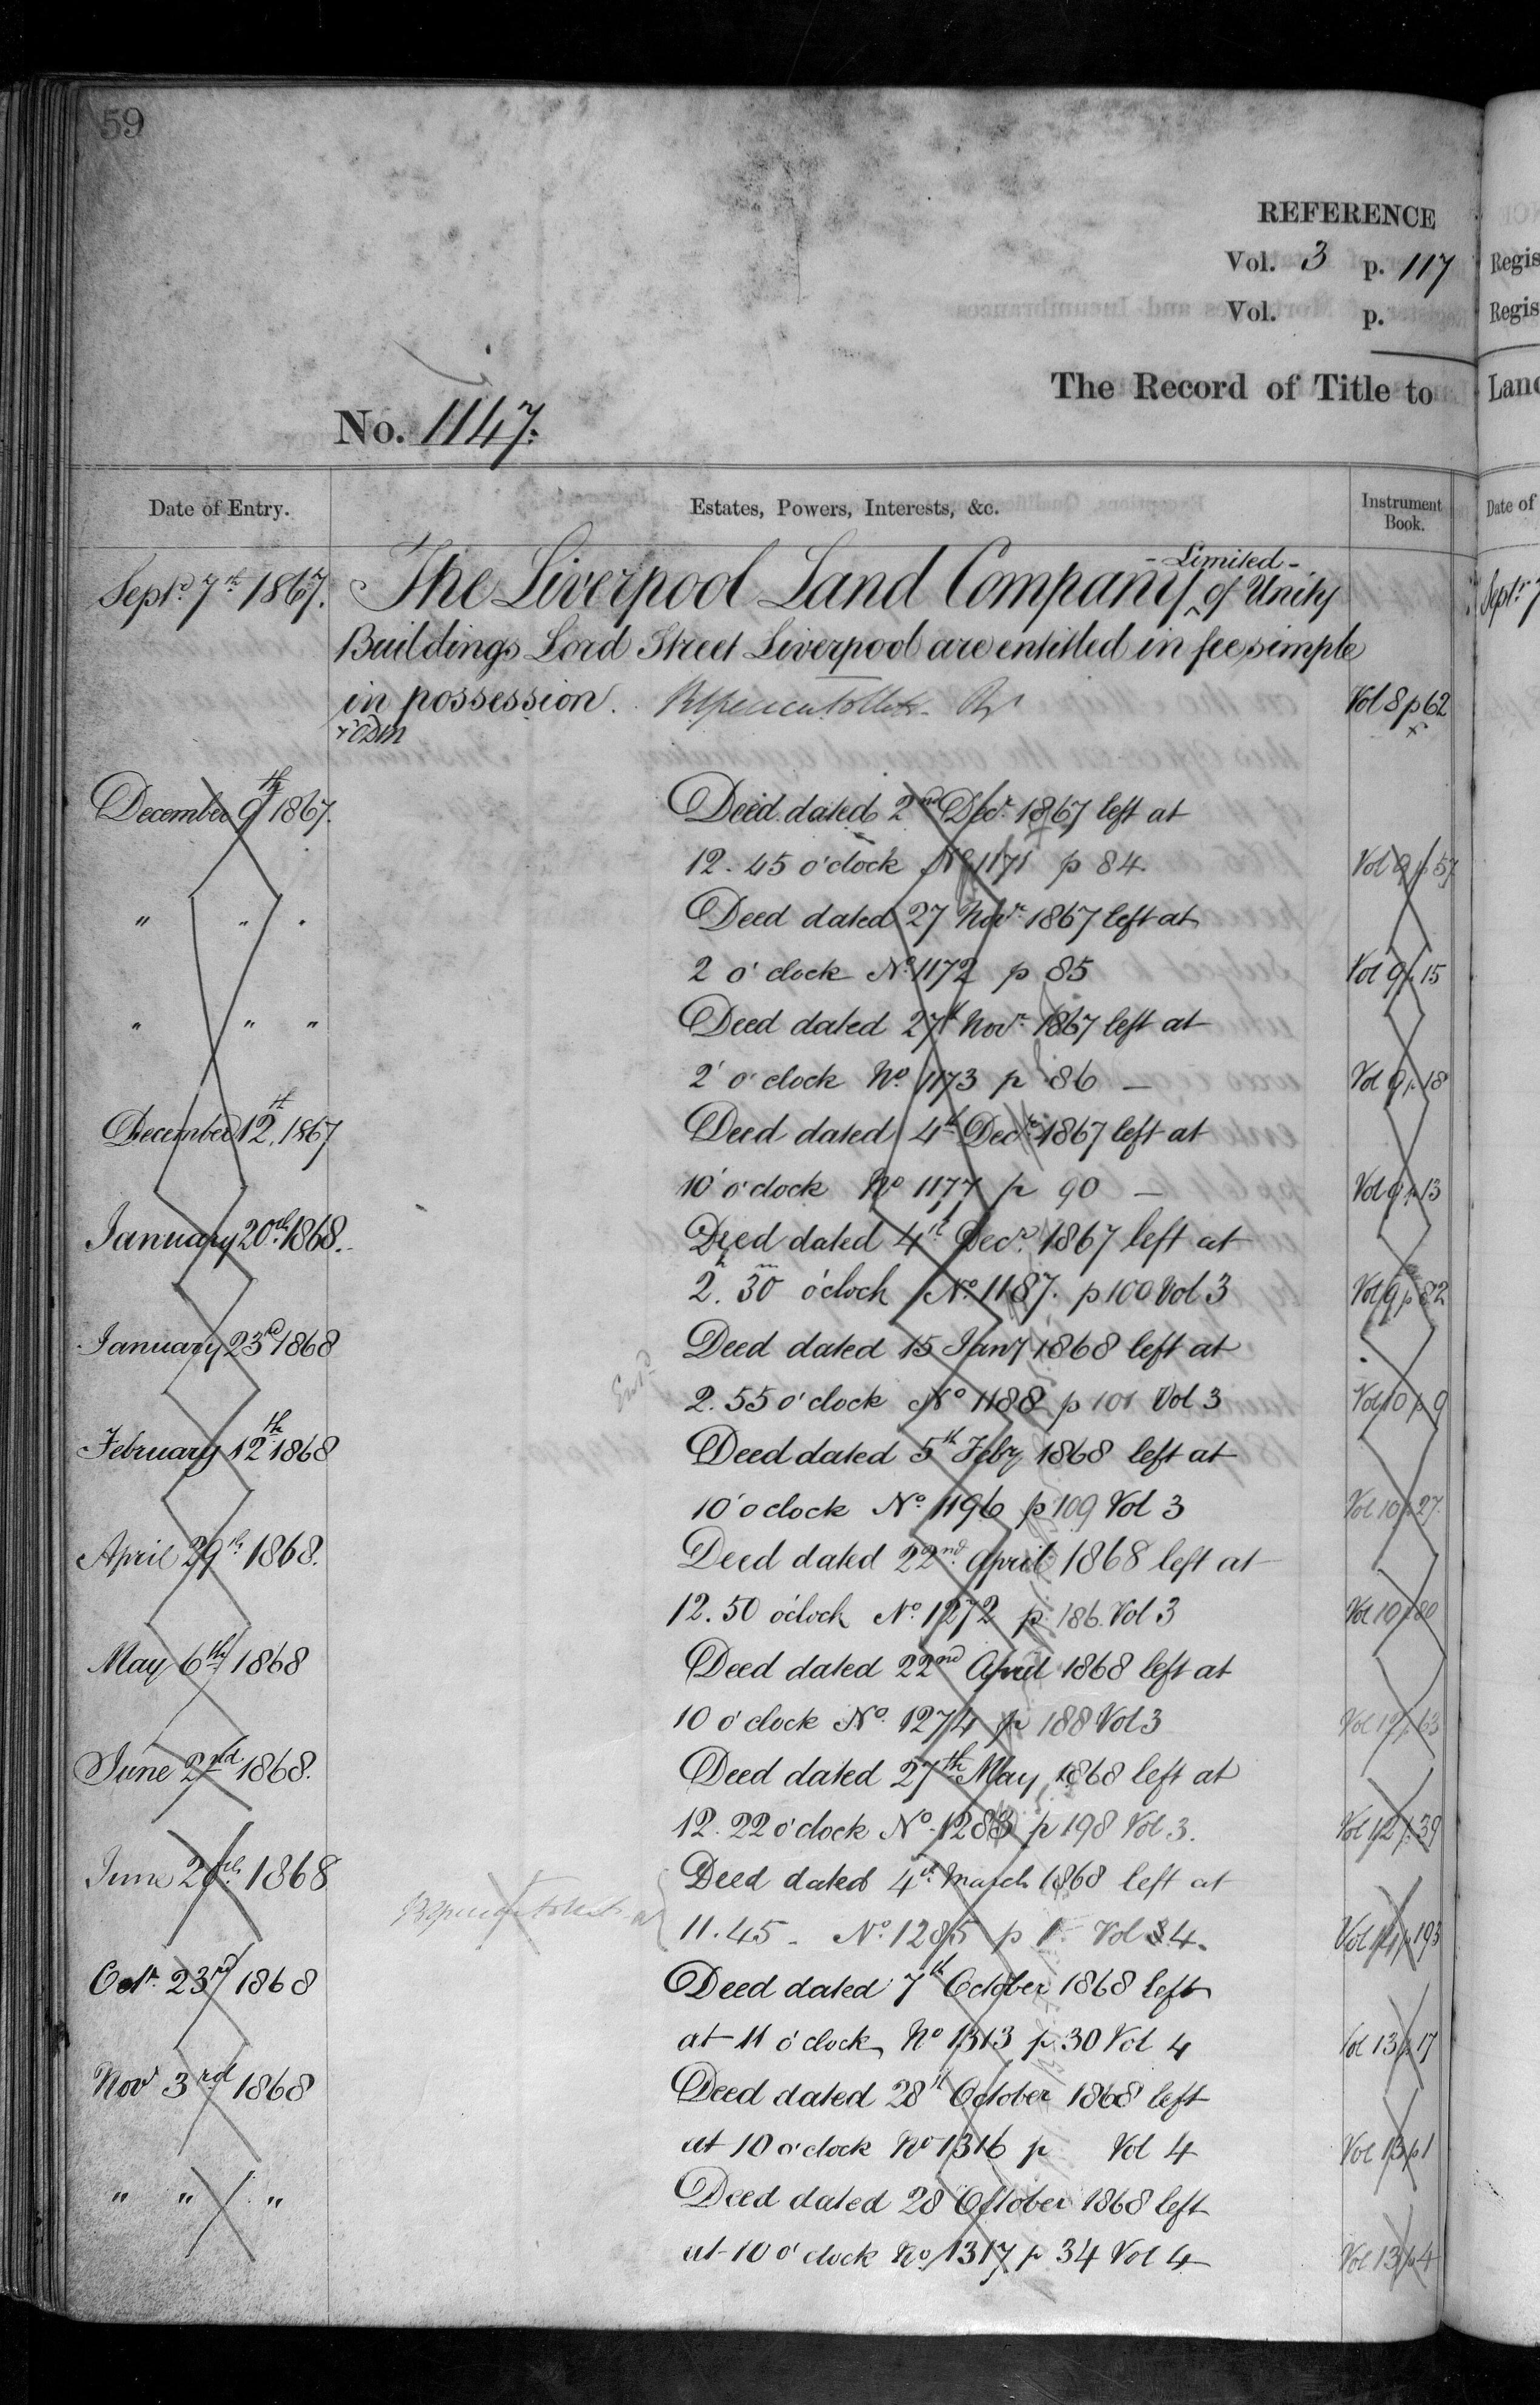 59
REFERENCE
Vol. 3 p. 117
Vol. p.
The Record of Title to
No. 1147.
Date of Entry. Estates, Powers, Interests, &c. Instrument Book.
Septr. 7th 1867. The Liverpool Land Company ^ - Limited - of Unity
Buildings Lord Street Liverpool are entitled in fee simple
in possession. Vol 8 p 62
December 9th 1867. Deed dated 2nd Decr. 1867 left at
12.45 o'clock No 1171 p 84. Vol 9 p 57
" " " Deed dated 27 Novr. 1867 left at
2 o'clock No. 1172 p 85 Vol 9 p 15
" " " Deed dated 27th Novr. 1867 left at
2 o'clock No. 1173 p 86 — Vol 9 p 18
December 12th, 1867 Deed dated 4th Decr. 1867 left at
10 o'clock No 1177 p 90 — Vol 9 p 13
January 20th. 1868. Deed dated 4th Decr. 1867 left at
2h. 30m o'clock No. 1187. p 100 Vol 3 Vol 9 p 82
January 23rd 1868 Deed dated 15 Jany 1868 left at
2.55 o'clock No 1188 p 101 Vol 3 Vol 10 p 9
February 12th 1868 Deed dated 5th Feby 1868 left at
10 o'clock No. 1196 p 109 Vol 3 Vol 10 p 27.
April 29th 1868. Deed dated 22nd. April 1868 left at
12.50 o'clock No. 1272 p. 186. Vol 3 Vol 10 p 80
May 6th 1868 Deed dated 22nd April 1868 left at
10 o'clock No. 1274 p 188 Vol 3 Vol 12 p 63
June 2nd 1868. Deed dated 27th May 1868 left at
12.22 o'clock No. 1283 p 198 Vol 3. Vol 12 p. 39
June 26th. 1868 Deed dated 4th March 1868 left at
11.45 - No. 1285 p 1 Vol 4. Vol 11 p 193
Octr. 23rd 1868 Deed dated 7th October 1868 left
at 11 o'clock No 1313 p 30 Vol 4 Vol 13 p 17
Nov 3rd 1868 Deed dated 28th October 1868 left
at 10 o'clock No 1316 p Vol 4 Vol 13 p 1
" " " Deed dated 28 October 1868 left
at 10 o'clock No. 1317 p 34 Vol 4 Vol 13 p 4
Regis
Regis
Land
Date of
Septr 7